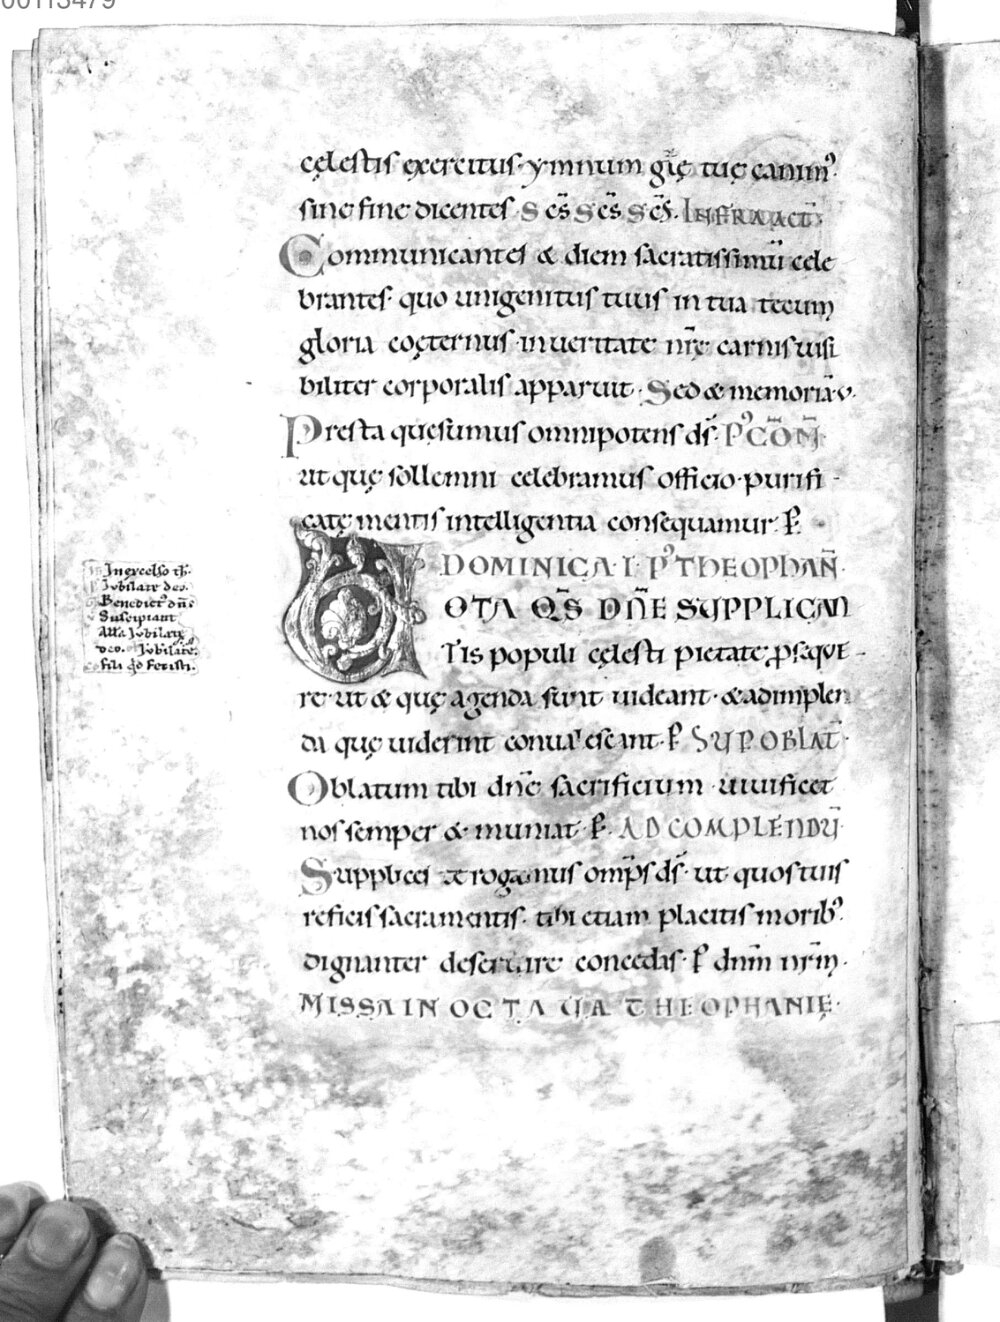 00113479
cęlestis exercitus· ymnum glię tuę canim᷒·
sine fine dicentes· S c̄s S c̄s S c̄s. INFRA ACT̄·
Communicantes & diem sacratissimū cele
brantes· quo unigenitus tuus in tua tecum
gloria coęternus· in ueritate nr̄ę carnis uisi
biliter corporalis apparuit· Sed & memoriā·v·
Presta quęsumus omnipotens ds̄· P᷒ COM̄·
ut quę sollemni celebramus officio· purifi-
catę mentis intelligentia consequamur· P̄·
DOMINICA· I· P᷒ THEOPHAÑ·
VOTA QS̄ DN̄E SUPPLICAN
TIS populi cęlesti pietate ꝓseque-
re· ut & quę agenda sunt uideant· & adimplen
da quę uiderint conualescant· P̄ SUP OBLAT̄·
Oblatum tibi dn̄e sacrificium· uiuificet
nos semper & muniat· P̄· AD COMPLENDŪ·
Supplices te rogamus omp̄s ds̄· ut quos tuis
reficis sacramentis· tibi etiam placitis morib᷒·
dignanter deseruire concedas· P̄ dnm̄ nr̄m·
MISSA IN OCTAUA THEOPHANIĘ·
In excelso th̄·
Iubilate deo·
Benedict᷒ dn̄s
Suscipiant
All̄a Iubilate
deo· Iubilate·
Fili qd̄ fecisti·